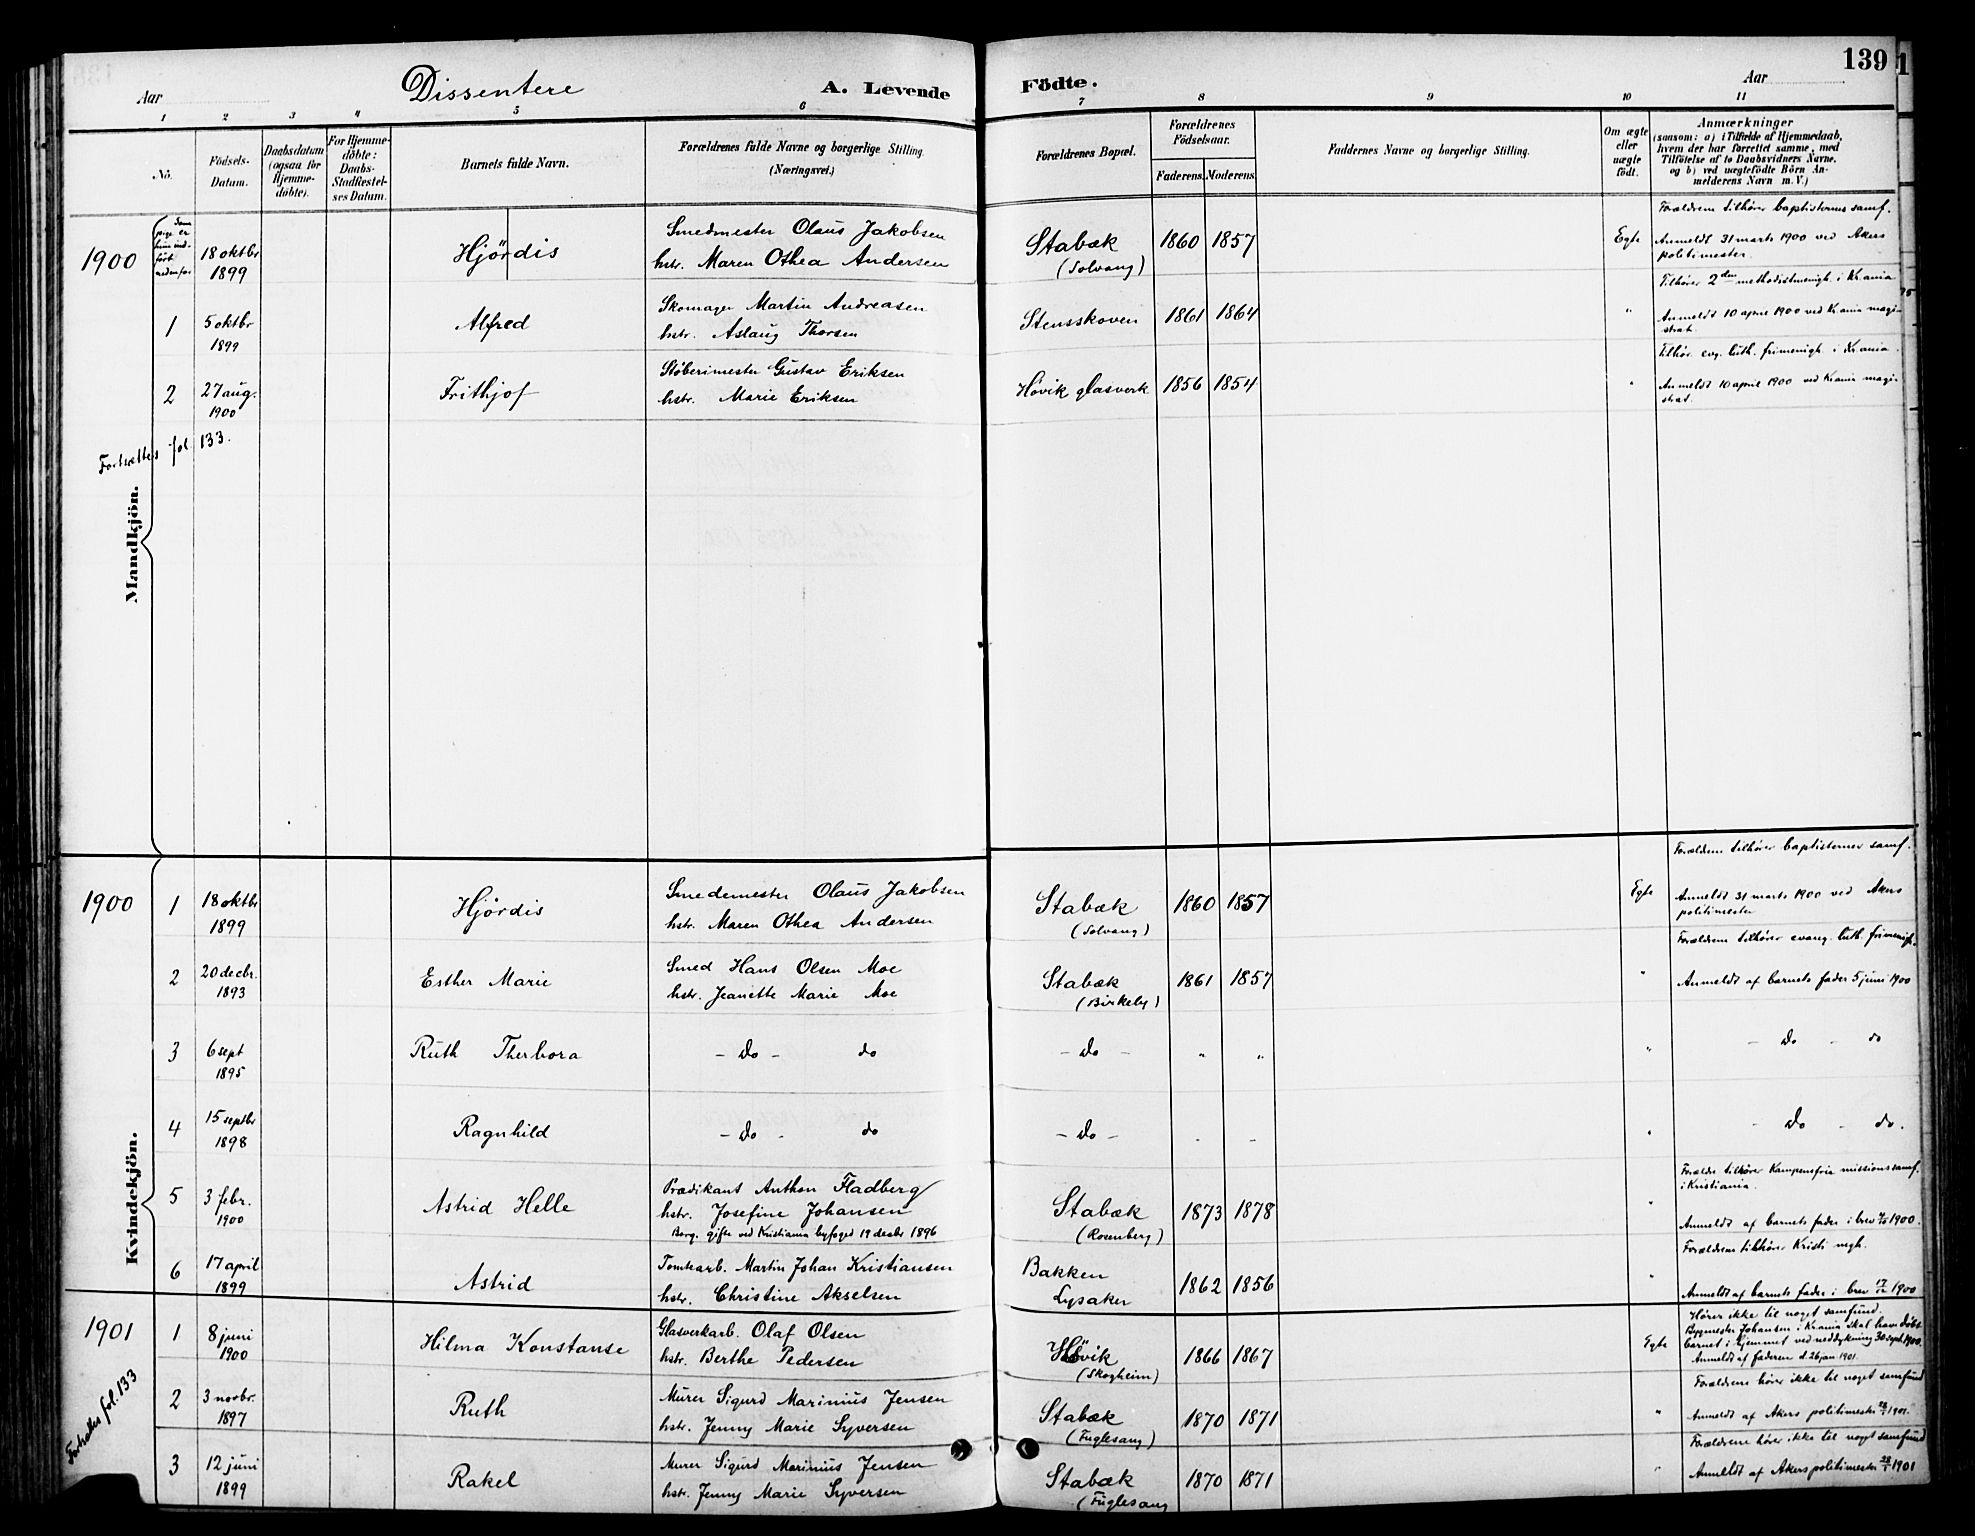 139
Aar
Dissentere
A. Levende
Födte.
Aar
1 2 3 4 5 6 7 8 9 10 11
No.
Födsels-Datum.
Daabsdatum (ogsaa for Hjemme-döbte).
For Hjemme-döbte: Daabs-Stadfæstel-ses Datum.
Barnets fulde Navn.
Forældrenes fulde Navne og borgerlige Stilling. (Næringsvei.)
Forældrenes Bopæl.
Forældrenes Födselsaar.
Faderens. Moderens.
Faddernes Navne og borgerlige Stilling.
Om ægte eller uægte födt.
Anmærkninger
(saasom: a) i Tilfælde af Hjemmedaab,
hvem der har forrettet samme, med
Tilföielse af to Daabsvidners Navne.
og b) ved uægtefödte Börn An-
melderens Navn m. V.)
Mandkjön.
1900 18 oktbr 1899 Hjördis
Smedmester Olaus Jakobsen
hstr. Maren Othea Andersen
Stabæk (Solvang) 1860 1857 Egte
Forældrene tilhører baptisternes samf.
Anmeldt 31 marts 1900 ved Akers politimester.
1 5 oktbr 1899 Alfred
Skomager Martin Andreasen
hstr. Aslaug Thorsen
Stensskoven 1861 1864 "
Tilhører 2den methodistmenigh. i Krania
Anmeldt 10 april 1900 ved Krania magistrat.
2 27 aug. 1900 Frithjof
Støberimester Gustav Eriksen
hstr. Marie Eriksen
Høvik glasverk 1856 1854 "
Tilhør. evg. luth. frimenigh. i Krania.
Anmeldt 10 april 1900 ved Krania magistrat.
Fortsættes fol. 133.
Kvindekjön.
1900 1 18 oktbr 1899 Hjördis
Smedemester Olaus Jakobsen
hstr. Maren Othea Andersen
Stabæk (Solvang) 1860 1857 Egte
Forældrene tilhører baptisternes samf.
Anmeldt 31 marts 1900 ved Akers politimester
2 20 decbr. 1893 Esther Marie
Smed Hans Olsen Moe
hstr. Jeanette Marie Moe
Stabæk (Birkeby) 1861 1857 "
Forældrene tilhører evang. luth. frimenigh.
Anmeldt af barnets fader 5 juni 1900
3 6 sept 1895 Ruth Therbora
- do - do - do - " " " - do - do
4 15 septbr 1898 Ragnhild
- do - do - do - - - " - do - do.
5 3 febr. 1900 Astrid Helle
Prædikant Anthon Fladberg
hstr. Josefine Johansen
Borg. gifte ved Kristiania byfoged 19 decbr 1896
Stabæk (Rosenberg) 1873 1878 "
Forældre tilhører Kampens frie missionssamf. i Kristiania.
Anmeldt af barnets fader i brev 1900.
6 17 april 1899 Astrid
Tomtearb. Martin Johan Kristiansen
hstr. Christine Akselsen
Bakken Lysaker 1862 1856 "
Forældrene tilhører Kristi mgh.
Anmeldt af barnets fader i brev 1900
1901 1 8 juni 1900 Hilma Konstanse
Glasverkarb. Olaf Olsen
hstr. Berthe Pedersen
Høvik (Skogheim) 1866 1867 Egte
Hører ikke til noget samfund.
Bygmester Johansen i Krania skal have døbt
barnet i hjemmet ved neddykning 30 sept. 1900.
Anmeldt af faderen d. 26 jan 1901.
2 3 novbr. 1897 Ruth
Murer Sigurd Marinius Jensen
hstr. Jenny Marie Syversen
Stabæk (Fuglesang) 1870 1871 "
Forældrene hører ikke til noget samfund
Anmeldt af Akers politimester 28/1 1901.
3 12 juni 1899 Rakel
Murer Sigurd Marinius Jensen
hstr. Jenny Marie Syversen
Stabæk (Fuglesang 1870 1871 "
Forældrene hører ikke til noget samfund
Anmeldt af Akers politimester 28/1 1901
Fortsættes fol. 133